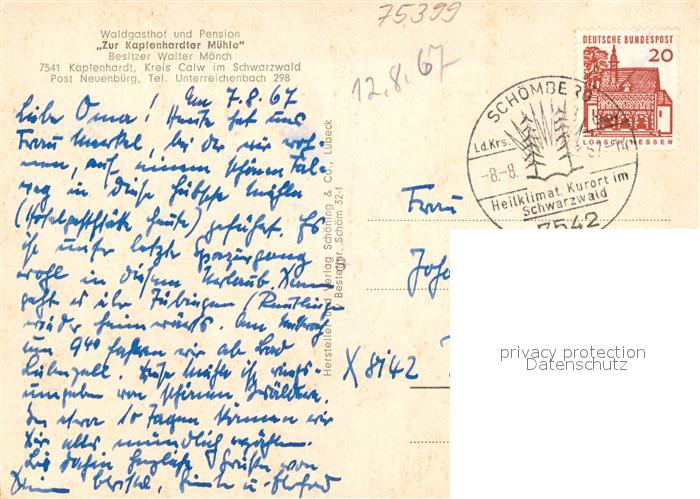 75399
Waldgasthof und Pension
„Zur Kapfenhardter Mühle"
Besitzer Walter Mönch
7541 Kapfenhardt, Kreis Calw im Schwarzwald
Post Neuenbürg, Tel. Unterreichenbach 298
12.8.67
DEUTSCHE BUNDESPOST
20
LORSCH/HESSEN
SCHÖMBERG
Ld.Krs.
-8.-8.
Heilklimat. Kurort im
Schwarzwald
7542
Am 7.8.67
Liebe Oma! Heute hat uns
Frau Merkel, bei der wir woh-
nen, auf einem schönen Tal-
weg in diese hübsche Mühle
(Hotelgaststätte heute) geführt. Es
ist unser letzter Spaziergang
wohl in diesem Urlaub. Dann
geht es über Tübingen (Reutlingen
wieder heimwärts. Am Mittwoch
um 9 fahren wir ab Bad
Liebenzell. Diese Mühle ist rings-
umgeben von schönen Wäldern.
In etwa 10 Tagen können wir
Dir alles mündlich erzählen.
Bis dahin herzliche Grüße von
Hersteller und Verlag Schöning & Co., Lübeck
Bestellnr. Schöm 32-1
Frau
Joha
X 8142
privacy protection
Datenschutz